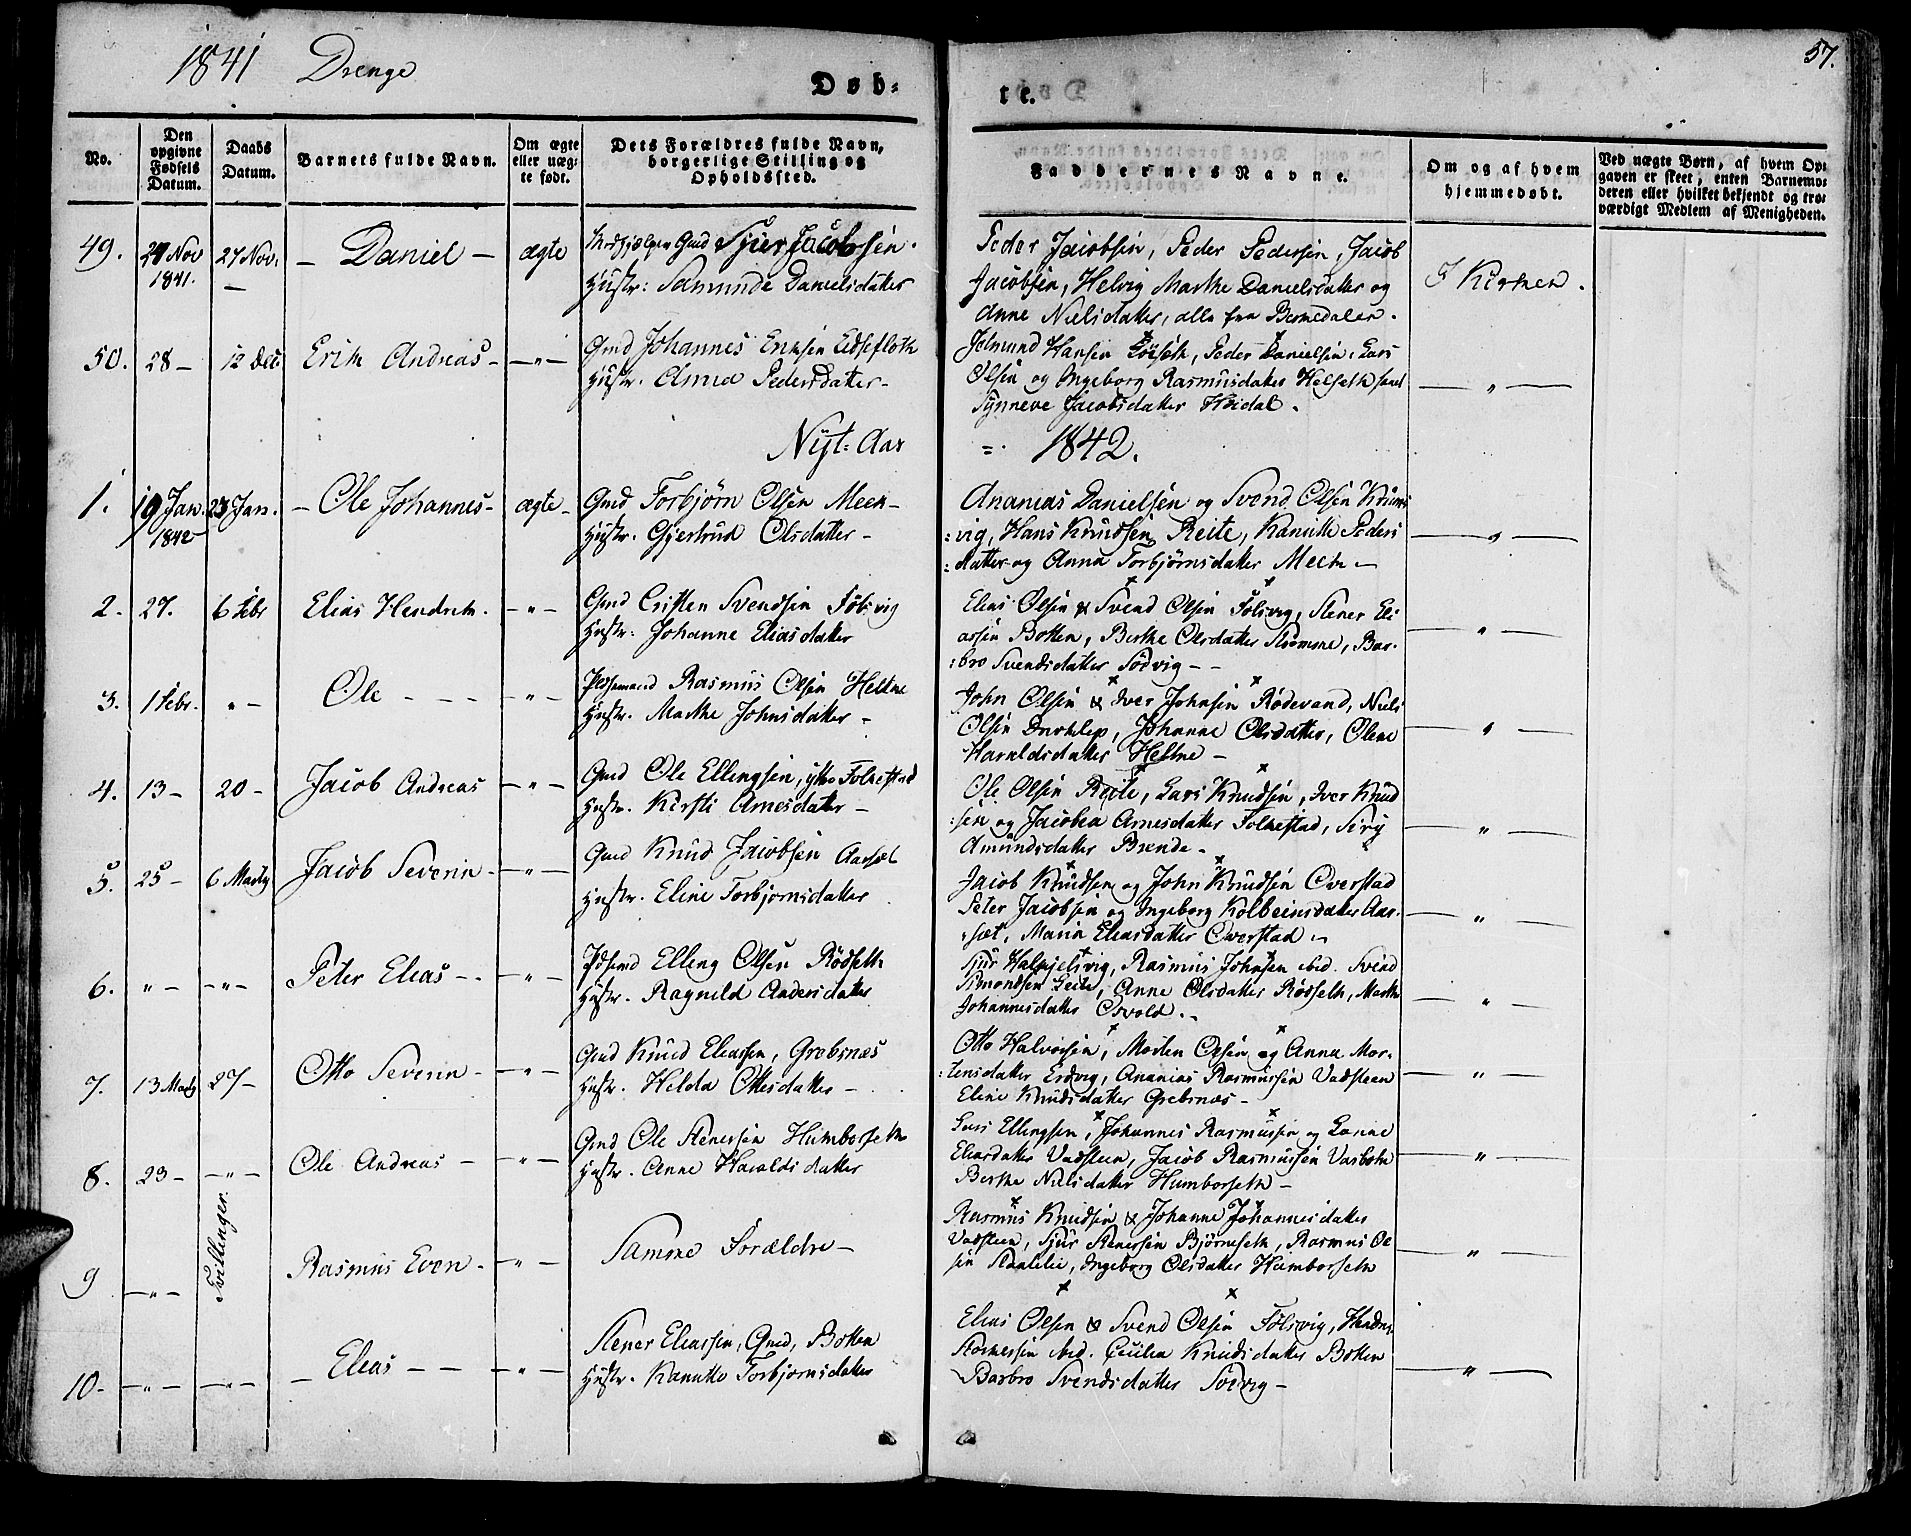 1841 Drenge
57.
Døb-
te.
No.
Den opgivne Fødsels Datum.
Daabs Datum.
Barnets fulde Navn.
Om ægte eller uægte født.
Dets Forældres fulde Navn, borgerlige Stilling og Opholdssted.
Faddernes Navne.
Om og af hvem hjemmedøbt.
Ved uægte Børn, af hvem Opgaven er skeet, enten Barnemoderen eller hvilket bekjendt og troværdigt Medlem af Menigheden.
49. 27 Nov 1841. 27 Nov. – Daniel – ægte
Gmd Sjur Jacobsen.
Hustr: Samunde Danielsdatter
Peder Jacobsen, Peder Pedersen, Jacob
Jacobsen, Helvig Marthe Danielsdatter og
Anne Nielsdatter, alle fra
I Kirken.
50. 28 – 12 Dec. Erik Andreas – – " –
Gmd Johannes Eriksen Eidsefloth
Hustr. Anna Pedersdatter –
Hansen, Peder Danielsen, Lars
Olsen og Ingeborg Rasmusdatter Helseth samt
Synneve Jacobsdatter Høidal.
– " –
Nyt-Aar
=. 1842.
1. 19 Jan. 1842 23 Jan. – Ole Johannes – ægte –
Gmd Torbjørn Olsen Meek –
Hustr. Gjertrud Olsdatter –
Ananias Danielsen og Svend Olsen Krums
:vig, Hans Knudsen Reite, Kanutte Peders
:datter og Anna Torbjørnsdatter Meek –
– " –
2. 27. 6 Febr Elias Hendrik. – " –
Gmd Cristen Svendsen
Hustr: Johanne Eliasdatter
Elias Olsen & Svend Olsen Folsvig, Stener Eli
assen Botten, Berthe Olsdatter Strømme, Bar-
:bro Svendsdatter Sødvig – –
– " –
3. 1 Febr. " – Ole – – – – " –
Rasmus Olsen Heltne
Hustr. Marthe Johnsdatter –
John Olsen & Iver Johnsen Rødevand, Niels
Olsen, Johanne Olsdatter, Olene
Haraldsdatter Heltne –
– " –
4. 13 – 20 – Jacob Andreas – " –
Gmd Ole Ellingsen, ytre Folkestad
Hustr. Kirsti Arnesdatter –
Ole Olsen Reite, Lars Knudsen, Iver Knud
:sen og Jacobea Arnesdatter Folkestad, Siry
Amundsdatter Brende –
– " –
5. 25 – 6 Marts Jacob Severin – – " –
Gmd Knud Jacobsen Aarsæt
Hustr. Eline Torbjørnsdatter
Jacob Knudsen og John Knudsen Overstad
Peter Jacobsen og Ingeborg Kolbeinsdatter Aar-
:sæt, Maria Eleasdatter Overstad –
– " –
6. " – – " – Peter Eleas – – – " –
Elling Olsen Rødseth
Hustr. Ragnild Andersdatter
Sjur Halkjelsvig, Rasmus Johnsen ibid. Svend
Simondsen, Anne Olsdatter Rødseth, Marthe
Johannesdatter Osvold. –
– " –
7. 13 Marts 27 – Otto Severin – – " –
Gmd Knud Eleassen, Grebsnæs
Hustr. Helda Ottesdatter –
Otto Halvorsen, Morten Olsen og Anna Mor-
:tensdatter Erdvig, Ananias Rasmussen Vadsteen
Eline Knudsdatter Grebsnæs –
– " –
8. 23 – – " – Ole Andreas – – " –
Tvillinger.
Gmd Ole Stenersen Humborseth
Hustr. Anne Haraldsdatter
Lars Ellingsen, Johannes Rasmussen og Lonne
Eleasdatter Vadsteen, Jacob Rasmussen Vasbotn
Berthe Nielsdatter Humborseth –
– " –
9 – " – Rasmus Even – – " –
Samme Forældre –
Rasmus Knudsen & Johanne Johannesdatter
Vadsteen, Sjur Stenersen Bjørneseth, Rasmus Ol
sen, Ingeborg Olsdatter Humborseth
– " –
10. – " – – " – – Eleas – – – " –
Stener Eleassen, Gmd, Botten
Hustr. Kanutte Torbjørnsdatter
Elias Olsen & Svend Olsen Folsvig,
ibid. Cecilia Knudsdatter Botten
Barbro Svendsdatter Sødvig –
– " –